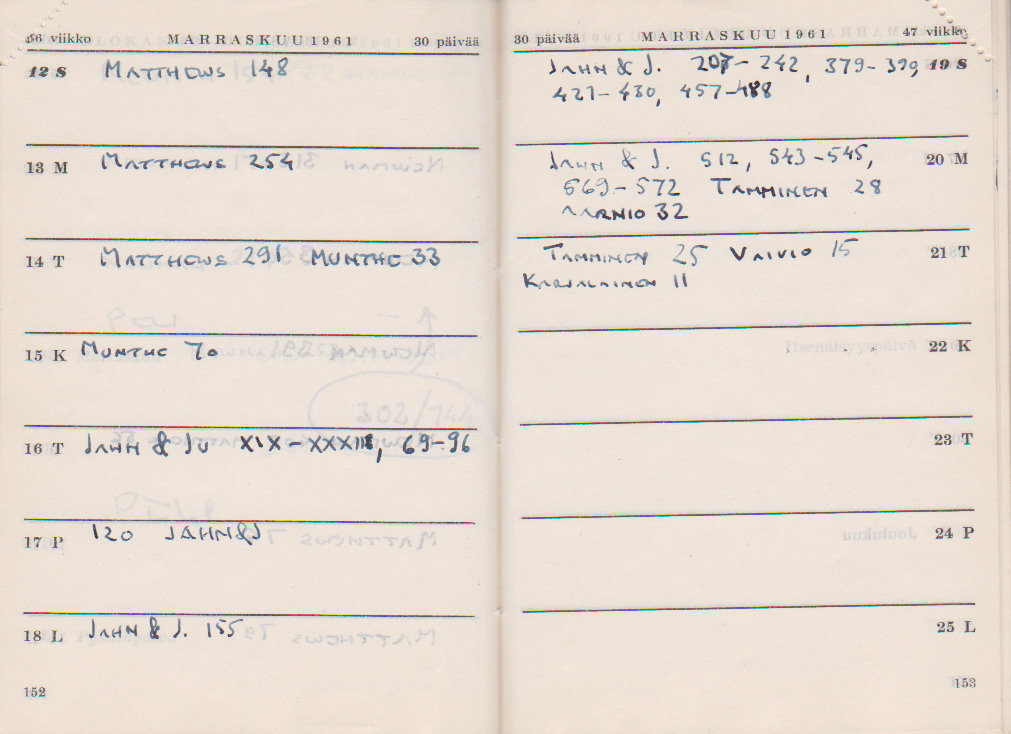 46 viikko MARRASKUU 1961 30 päivää
12 S MATTHEWS 148
13 M MATTHEWS 254
14 T MATTHEWS 291 MUNTHE 33
15 K MUNTHE 70
16 T JAHN & JU XIX-XXXIII, 69-96
17 P 120 JAHN&J
18 L JAHN & J. 155
152
30 päivää MARRASKUU 1961 47 viikko
JAHN & J. 207-242, 379-390, 19 S
427-430, 457-488
JAHN & J. 512, 543-545, 20 M
569-572 TAMMINEN 28
AARNIO 32
TAMMINEN 25 VAIVIO 15 21 T
KARJALAINEN 11
22 K
23 T
24 P
25 L
153